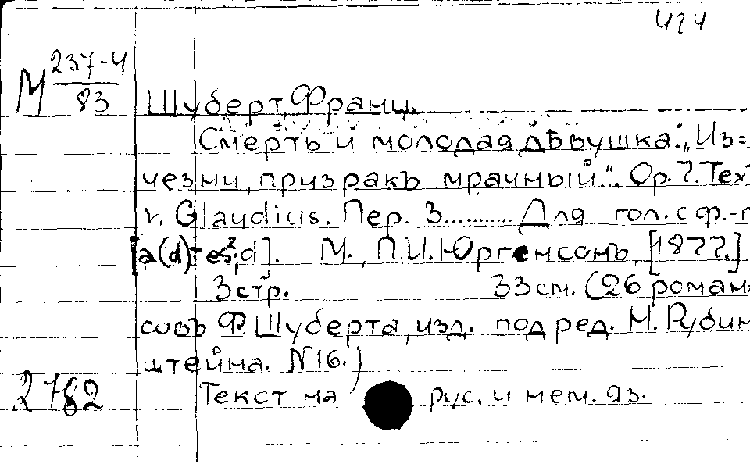 424
М 237-4
83
Шуберт, Франц.
Смерть и молодая дѣвушка: „Из=
чезни, призракъ мрачный." Op. 7. Тех
v. Glaudius. Пер. З.......... Для гол. с ф.-п
[a(d) d]. М., П.И. Юргенсонъ, [1877.]
3 стр. 33 см. (26 роман
совъ Ф. Шуберта, изд. под ред. М. Рубин
штейна. N 16.)
2782
Текст на рус. и нем. яз.